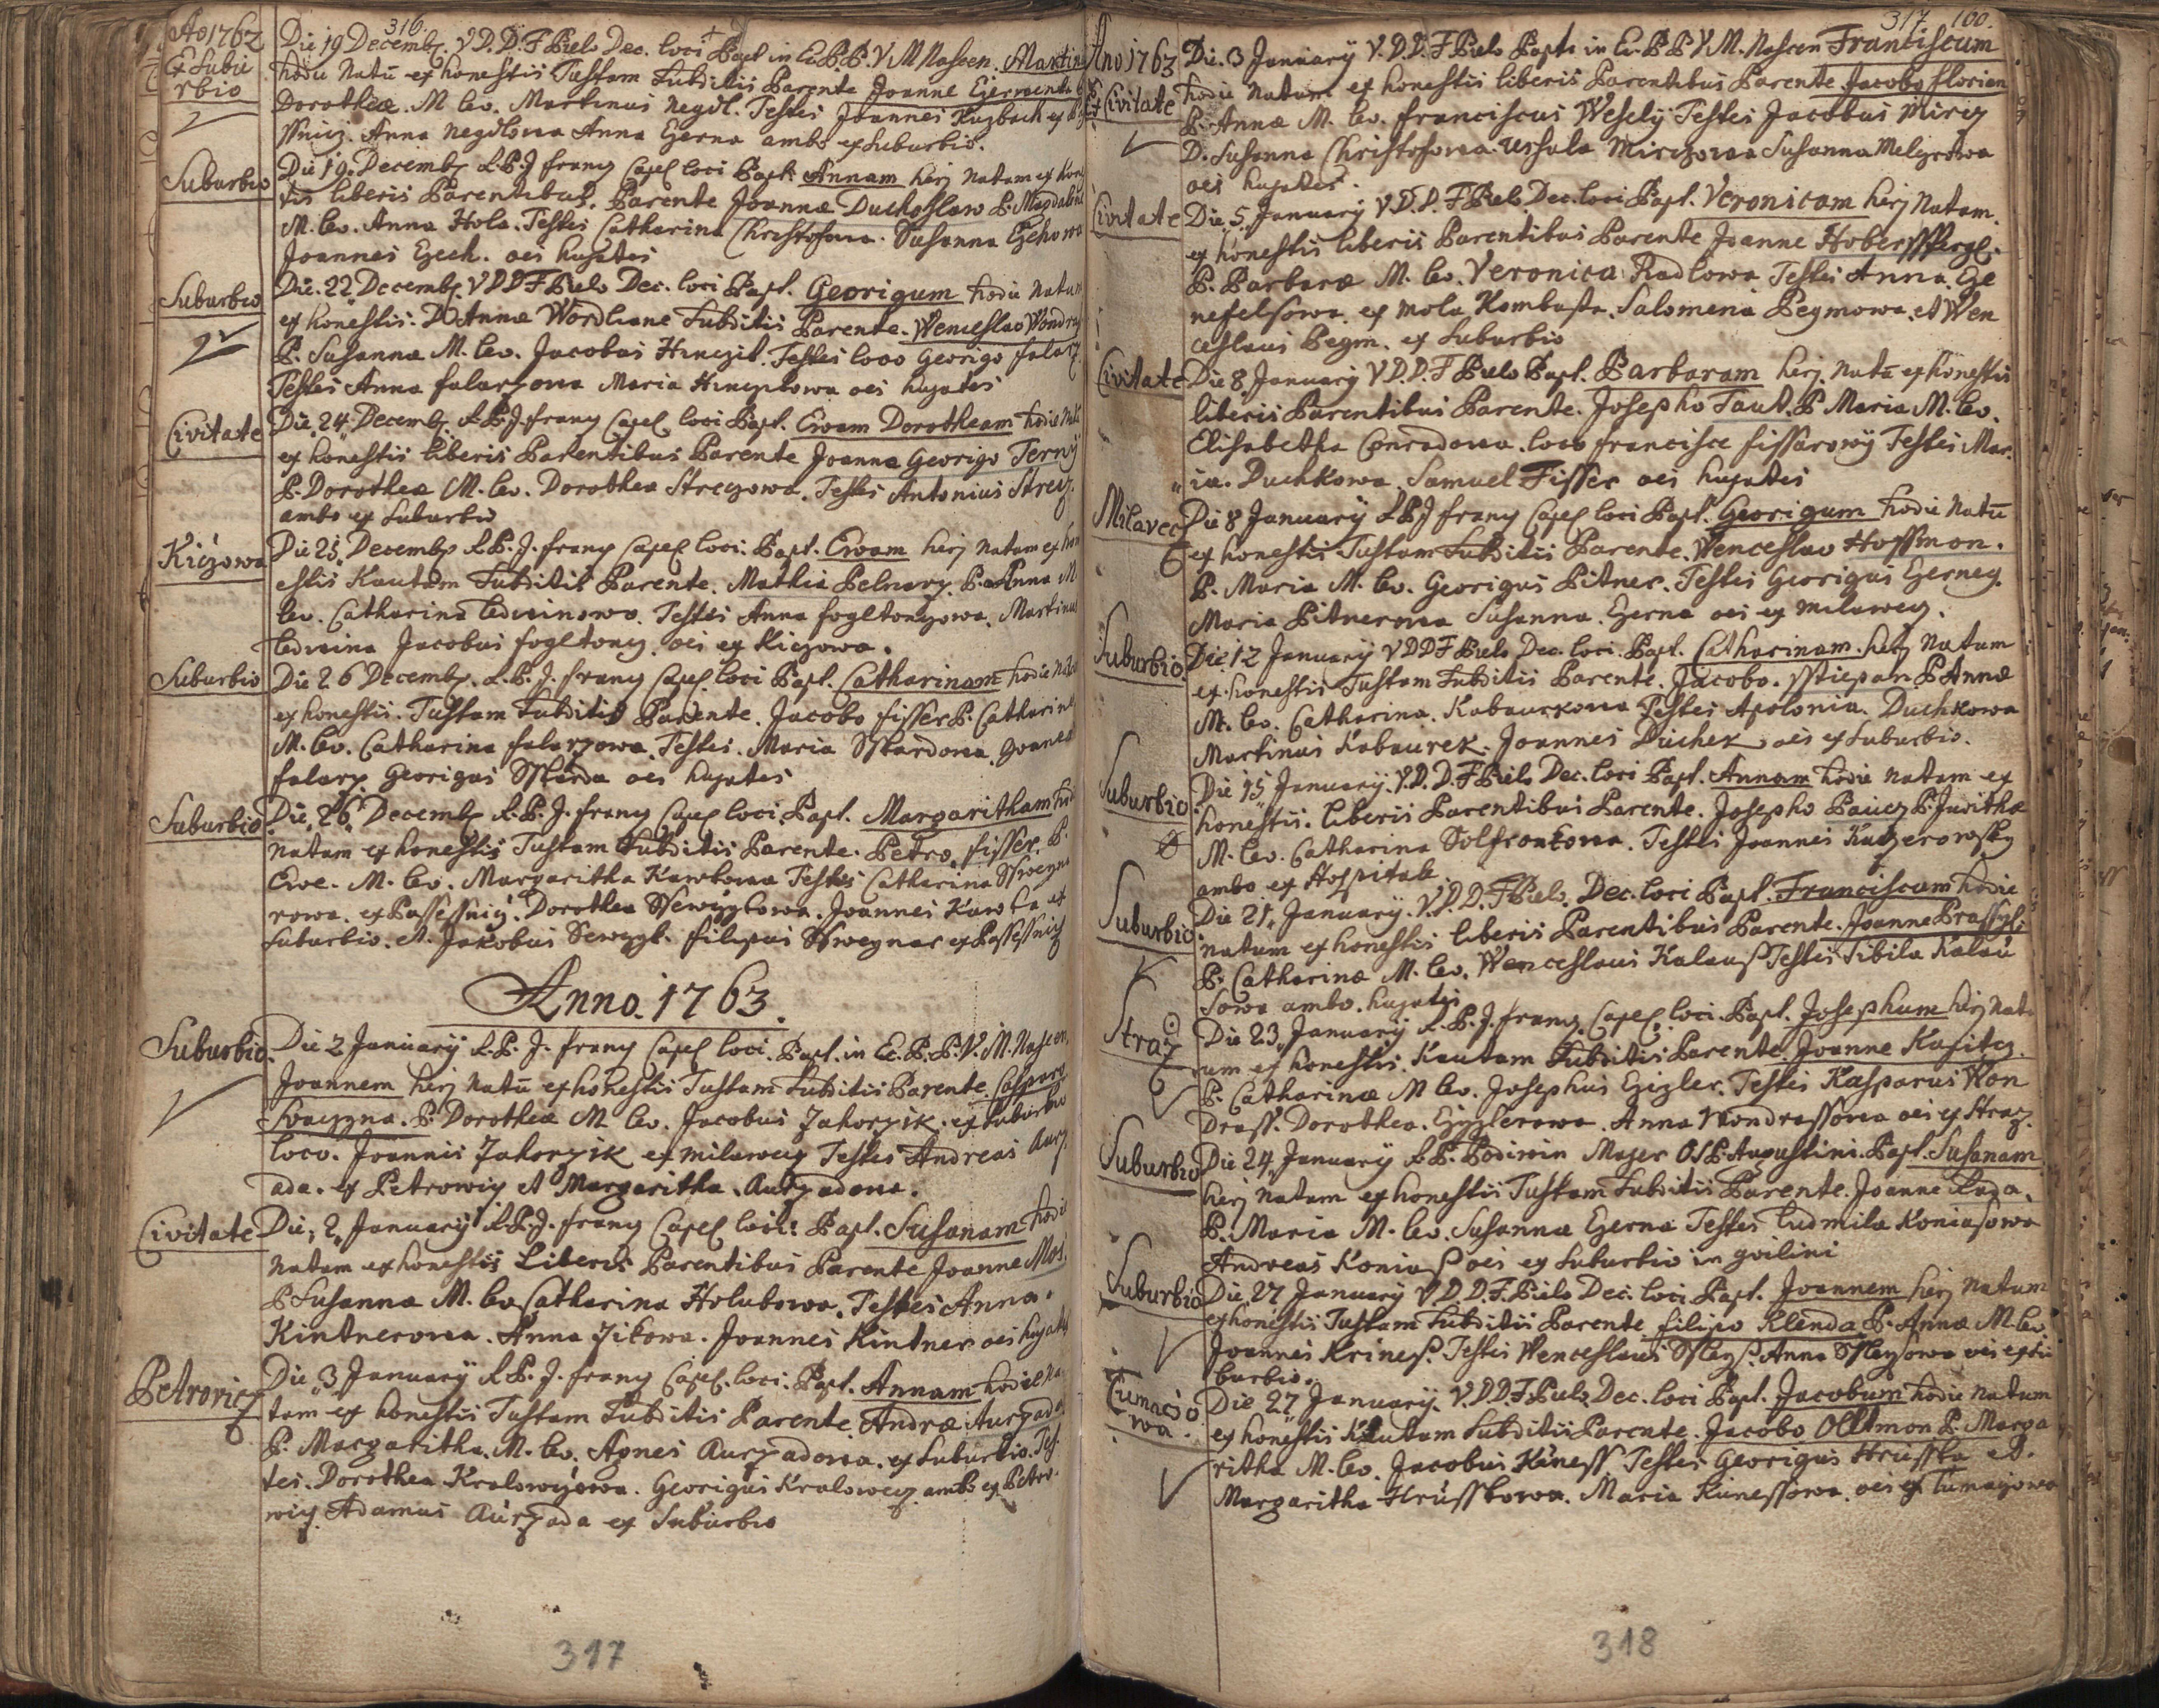 316.
Ao 1762
Ex Subu
rbio
Die 19 Decemb. V.D.D.F Biels Dec. loci Bapt in Ec.B.P.V M Nascen. Martinu
hodie Natu ex honestis Tustam Subditis Parente Joanne
Dorothea. M. lev. Martinus Negdl. Testes Joannes Kuzbach ex
Anna Negdlowa Anna Czerna ambo ex Suburbio.
Suburbio
Die 19 Decemb. R.P.J. franz Capel loci Bapt. Annam herj Natam ex hon
tis liberis Parentibus. Parente Joanne Duchoslaw P. Magdalena
M. lev. Anna Hola. Testes Catharina Christofowa. Susanna Czechowa
Joannes Czech. oes hujates
Suburbio
Die 22 Decemb. V D D F Biels Dec. loci Bapt. Georigum hodie Natum
ex honestis. D Annæ Wordliane Subditis Parente. Wenceslao Wondra
P. Susanna M. lev. Jacobus Hinczil. Testes loco Georigo falarz
Testes Anna falarzowa Maria Hinczilowa oes hujates
Civitate
Die 24 Decemb. R.P.J. franz Capel loci Bapt. Ewam Dorotheam hodie
ex honestis liberis Parentibus Parente Joanne Georigo Ferny
P. Dorothea M. lev. Dorothea Strczowa. Testes Antonius Strcz.
ambo ex Suburbio
Kiczowa
Die 25 Decemb. R.P.J. franz Capel loci. Bapt. Ewam herj natam ex hon
estis Kautam Subditis Parente. Mathia Pelnarz. P. Anna M
lev. Catharina Cedwinowa. Testes Anna fogltonzowa. Martinus
Cedwina Jacobus fogltonz. oes ex Kiczowa.
Suburbio
Die 26 Decemb. R.P.J. franz Capel loci Bapt. Catharinam hodie
ex honestis. Tustam Subditis Parente. Jacobo fisser P. Catharina
M. lev. Catharina falarzowa. Testes. Maria Sskardowa. Joanes
falarz Georigus Sskarda oes hujates
Suburbio
Die 26 Decemb. R.P.J. franz Capel loci. Bapt. Margaritham
natam ex honestis Tustam Subditis Parente. Petro fisser P.
Ewe. M. lev. Margaritha Kawkowa Testes Catharina Ssweyna
rowa. ex Passessnicz. Dorothea Sewczykowa. Joannes Kawka ex
Suburbio. et. Jakobus Sewczyk. filipus Ssweynar ex Passessnicz
Anno. 1763.
Suburbio.
Die 2 January R.P. J. franz Capel loci. Bapt. in Ec.B.P.V.M. Nascen.
Joannem herj Natu ex honestis Tustam Subditis Parente Casparo
Swaczyna. P. Dorothea M lev. Jacobus Zahorzik. ex Suburbio
loco. Joannis Zahorzik ex Milawecz Testes Andreas Aurz
ada. ex Petrowicz et Margaritha. Aurzadowa.
Civitate
Die 2 January R.P.J. franz Capel loci: Bapt. Susanam hodie
Natam ex honestis Liberis Parentibus Parente Joanne Mos.
P Susanna M. lev Catharina Holubowa. Testes Anna.
Kintnerowa. Anna Zikowa. Joannes Kintner oes hujates
Petrovicz
Die 3 January R.P.J. franz Capel. loci. Bapt. Annam hodie Na
tam ex honestis Tustam Subditis Parente Andræ Aurzada
P. Margaritha. M. lev. Agnes Aurzadowa. ex Suburbio. Tes
tes. Dorothea Kralowczowa. Georigus Kralowecz ambo ex Petro
wicz. Adamus Aurzada ex Suburbio
317
317 160.
Ano 1763
Ex Civitate
Die. 3 January V.D.D.F Biels Bapt. in Ec. B P V.M. Nascen Franciscum
hodie natum ex honestis liberis Parentibus Parente Jacobo florian
P. Annæ M. lev. franciscus Wesely Testes Jacobus Mircz
D. Susanna Christofowa. Ursula Mirczowa Susanna Melzrowa
oes hujates.
Civitate
Die 5 January V.D.D.F Biels Dec. loci Bapt. Veronicam herj Natam.
ex honestis liberis Parentibus Parente Joanne Hoberssperge.
P. Barbaræ M. lev. Veronica Radlowa. Testes Anna. Cze
nefelsowa. ex mola Kombasta. Salomena Pegmowa. et Wen
ceslaus Pegm. ex Suburbio
Civitate
Die 8 January V D.D.F Biels Bapt. Barbaram herj. natu ex honestis
liberis Parentibus Parente. Josepho Taut. P Maria M. lev.
Elisabetha Conradowa. loco francisce fissarowy Testes Mar.
ia. Duchkowa. Samuel Fisser oes hujates
Milavec
Die 8 January R.P.J franz Capel loci Bapt. Georigum hodie Natu
ex honestis Tustam Subditis Parente. Wenceslao Hoffmon.
P. Maria M. lev. Georigus Pitner. Testes Georigus Czerney.
Maria Pitnerowa Susanna. Czerna oes ex Milawecz.
Suburbio.
Die 12 January V D D F Biels Dec. loci. Bapt. Catharinam. herj Natam
ex honestis Tustam Subditis Parente. Jacobo. Sstiepan P Annæ
M. lev. Catharina. Kabaurkowa Testes Apolonia. Duchkowa
Martinus Kabaurek. Joannes Duchek oes ex Suburbio.
Suburbio
Die 15 January. V.D.D.F Biels Dec. loci Bapt. Annam hodie natam ex
honestis. liberis Parentibus Parente. Josepho Paucz P. Juditha
M. lev. Catharina Solfronkowa. Testes Joannes Kaczerowsky
ambo ex Hospitale.
Suburbio
Die 21 January. V.D.D.F Biels. Dec. loci Bapt. Franciscum hodie
natum ex honestis liberis Parentibus Parente. Joanne Prassyl.
P. Catharinæ M. lev. Wenceslaus Kalaus Testes Sibila Kalau
sowa ambo. hujates
Straz
Die 23 January R.P.J. franz Capel. loci. Bapt. Josephum herj Nat
um ex honestis. Kautam Subditis Parente. Joanne Kasitz.
P. Catharinæ M lev. Josephus Czizler. Testes Kasparus Kon
Drass. Dorothea. Czizlerowa. Anna Wondrassowa oes ex Straz.
Suburbio
Die 24 January R.P. Bodiwin Mayer O.S.P. Augustini. Bapt. Susanam
herj Natam ex honestis Tustam Subditis Parente. Joanne Rada.
P. Maria M. lev. Susanna Czerna Testes Ludmila Koniasowa
Andreas Konias oes ex Suburbio in gvilini
Suburbio
Die 27 January V.D.D.F. Biels Dec. loci Bapt. Joannem herj natum
ex honestis Tustam Subditis Parente filipo Klenda P. Annæ M. lev
Joannes Krines. Testes Wenceslaus Sslays. Anna Sslaysowa oes ex su
burbio.
Tumacio
wa.
Die 27 January. V.D.D.F Biels Dec. loci Bapt. Jacobum hodie natum
ex honestis Kautam Subditis Parente. Jacobo Olltmon P. Marga
ritha M. lev. Jacobus Kuness Testes Georigus Hrusska et.
Margaritha Hrusskowa. Maria Kunessowa. oes ex Tumaczowa
318